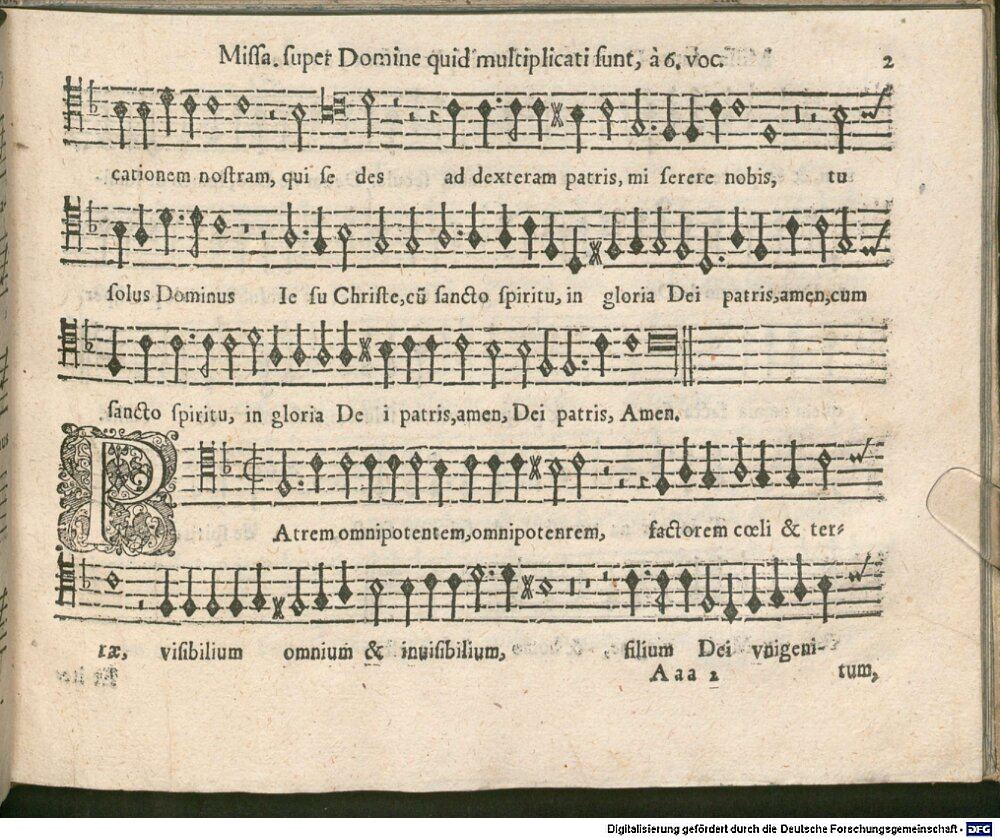 Missa. super Domine quid multiplicati sunt, à 6. voc. 2
cationem nostram, qui se des ad dexteram patris, mi serere nobis, tu
solus Dominus Ie su Christe, cũ sancto spiritu, in gloria Dei patris, amen, cum
sancto spiritu, in gloria De i patris, amen, Dei patris, Amen.
PAtrem omnipotentem, omnipotenrem, factorem cœli & ter-
ræ, visibilium omnium & inuisibilium, filium Dei vnigeni-
Aaa 2 tum,
Digitalisierung gefördert durch die Deutsche Forschungsgemeinschaft - DFG